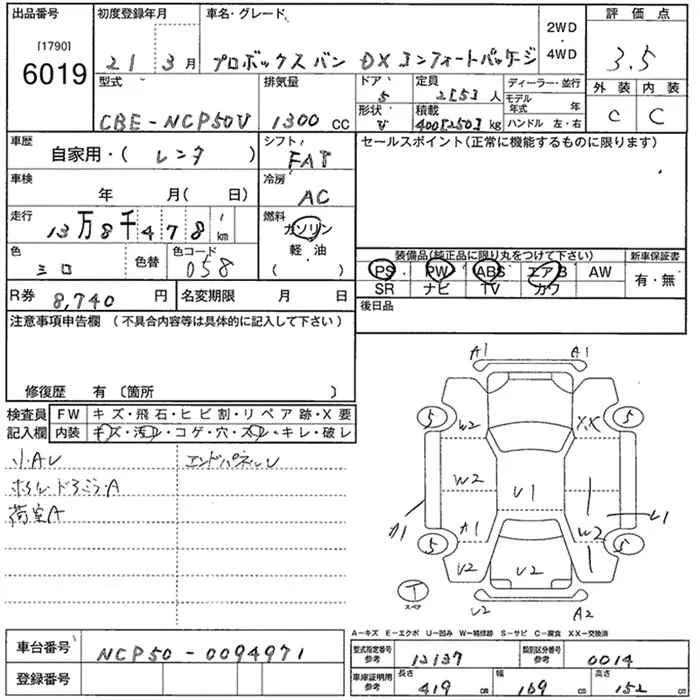 出品番号
[1790]
6019
初度登録年月
21 3月
車名・グレード
プロボックスバン DXコンフォートパッケージ
2WD
・
4WD
評価点
3.5
外装 内装
C C
型式
CBE-NCP50V
排気量
1300 CC
ドア
5
形状
V
定員
2[5]人
積載
400[250]kg
ディーラー・並行
モデル年式 年
ハンドル 左・右
車歴
自家用・( レンタ )
シフト
FAT
セールスポイント(正常に機能するものに限ります)
車検
年 月( 日)
冷房
AC
走行
13万8千478 km
燃料
ガソリン
軽・油
・
( )
色
シロ
色替
色コード
058
装備品(純正品に限り丸をつけて下さい)
PS PW ABS エアB AW
SR ナビ TV カワ
新車保証書
有・無
R券 8,740円
名変期限 月 日
後日品
注意事項申告欄 (不具合内容等は具体的に記入して下さい)
修復歴 有 〔箇所 〕
検査員記入欄
FW キズ・飛石・ヒビ割・リペア跡・X要
内装 キズ・汚レ・コゲ・穴・スレ・キレ・破レ
小・AU
エンドパネルU
荷室A
A1 A1
5 5
W2 XX
W2 U1
A1 U1
A1 W2
5 5
U2 U2
T
スペア
U2 A2
A-キズ E-エクボ U-凹み W-補修跡 S-サビ C-腐食 XX-交換済
車台番号 NCP50-0094971
登録番号
型式指定番号参考 12137
類別区分番号参考 0014
車庫証明用参考
長さ 419 cm
幅 169 cm
高さ 152 cm